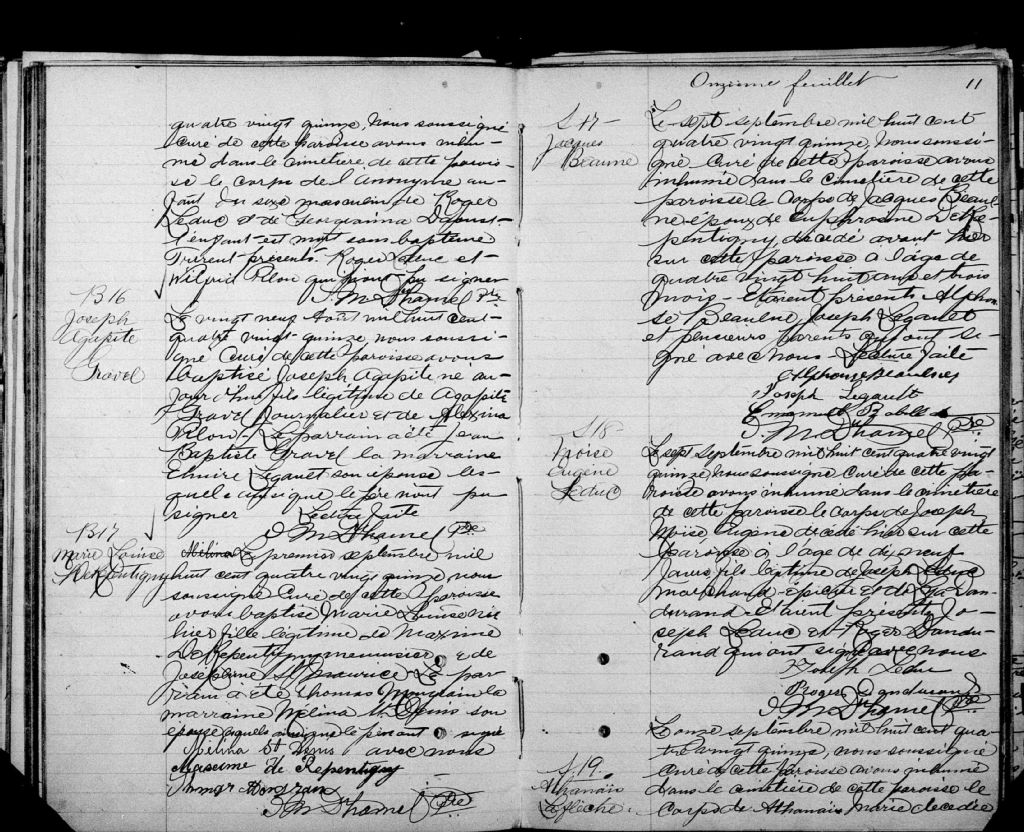 quatre vingt quinze, nous soussigné
curé de cette paroisse avons inhu-
mé dans le cimetière de cette parois-
se le corps de l'anonyme en-
fant du sexe masculin de Roger
Leduc et de Georgianna
l'enfant est mort sans baptême
Furent présents Roger Leduc et
Wilfrid Pilon qui n'ont pu signer
J. M. Duhamel Ptre
B 16
Joseph
Agapite
Gravel
Le vingt neuf Août mil huit cent
quatre vingt quinze, nous soussi-
gné Curé de cette paroisse avons
baptisé Joseph Agapite, né au-
jourd'hui fils légitime de Agapite
Gravel Journalier et de Alexina
Pilon. Le parrain a été Jean
Baptiste Gravel la marraine
Elmire Legault son épouse les-
quels ainsi que le père n'ont pu
signer Lecture faite
J M Duhamel Ptre
B 17
Marie Louise
De Repentigny
Le premier septembre mil
huit cent quatre vingt quinze nous
soussigné Curé de cette Paroisse
avons baptisé Marie Louise née
hier fille légitime de Maxime
De Repentigny menuisier et de
Joséphine St Maurice Le par
rain a été Thomas Mongrain la
marraine Mélina St Denis son
épouse lesquels ainsi que le père ont signé
Melina St Denis avec nous
Maxime de Repentigny
Mongrain
J M Duhamel Ptre
Onzième feuillet 11
S 17
Jacques
Beaune
Le sept septembre mil huit cent
quatre vingt quinze, nous soussi-
gné Curé de cette Paroisse avons
inhumé dans le cimetière de cette
paroisse le corps de Jacques Beaul
ne époux de Euphrosine De Re-
pentigny, décédé avant hier
sur cette Paroisse à l'âge de
quatre vingt huit ans et trois
mois - Etaient présents Alphon
se Beaulne, Joseph Legault
et plusieurs parents qui ont si-
gné avec nous Lecture faite
Alphonse Beaulne
Joseph Legault
J. M Duhamel Ptre
S 18
Moise
Eugène
Leduc
Le sept septembre mil huit cent quatre vingt
quinze, nous soussigné Curé de cette pa-
roisse avons inhumé dans le cimetière
de cette paroisse le corps de Joseph
Moïse, Eugène décédé hier sur cette
Paroisse à l'âge de dix neuf
jours, fils légitime de Joseph Leduc
marchand-épicier et de Léa Dan-
durand. Etaient présents Jo-
seph Leduc et Roger Dandu-
rand qui ont signé avec nous
Joseph Leduc
Roger Dandurand
J M Duhamel Ptre
S. 19.
Athanaïs
Laflèche
Le onze septembre mil huit cent qua
tre vingt quinze, nous soussigné
curé de cette Paroisse avons inhumé
dans le cimetière de cette paroisse le
corps de Athanaïs Marie décédée